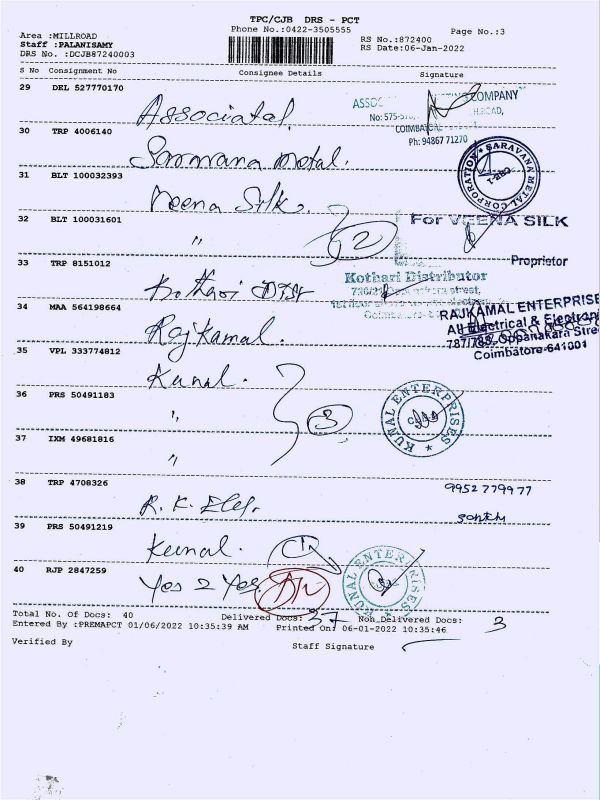 TPC/CJB DRS - PCT
Phone No.:0422-3505555
Page No.:3
Area :MILLROAD
RS No.:872400
Staff :PALANISAMY
RS Date:06-Jan-2022
DRS No. :DCJB87240003
S No Consignment No Consignee Details Signature
29 DEL 527770170
Associatal.
ASSOC COMPANY
No: 575- ROAD,
COIMBAT
Ph: 94867 71270
30 TRP 4006140
Saravana Metal.
SARAVANA METAL CORPORATION
31 BLT 100032393
Veena Silk.
32 BLT 100031601
"
2
For VEENA SILK
Proprietor
33 TRP 8151012
Kothari Dist
Kothari Distributor
34 MAA 564198664
Rajkamal.
RAJKAMAL ENTERPRISE
All Electrical & Electroni
787/788, Oppanakara Stree
Coimbatore-641001
35 VPL 333774812
Kunal.
36 PRS 50491183
"
3
KUNAL ENTERPRISES
37 IXM 49681816
"
38 TRP 4708326
R. K. Elec.
9952779977
39 PRS 50491219
Kunal.
1
KUNAL ENTERPRISES
40 RJP 2847259
Yes 2 Yes.
Total No. Of Docs: 40 Delivered Docs: 37 Non Delivered Docs: 3
Entered By :PREMAPCT 01/06/2022 10:35:39 AM Printed On: 06-01-2022 10:35:46
Verified By Staff Signature